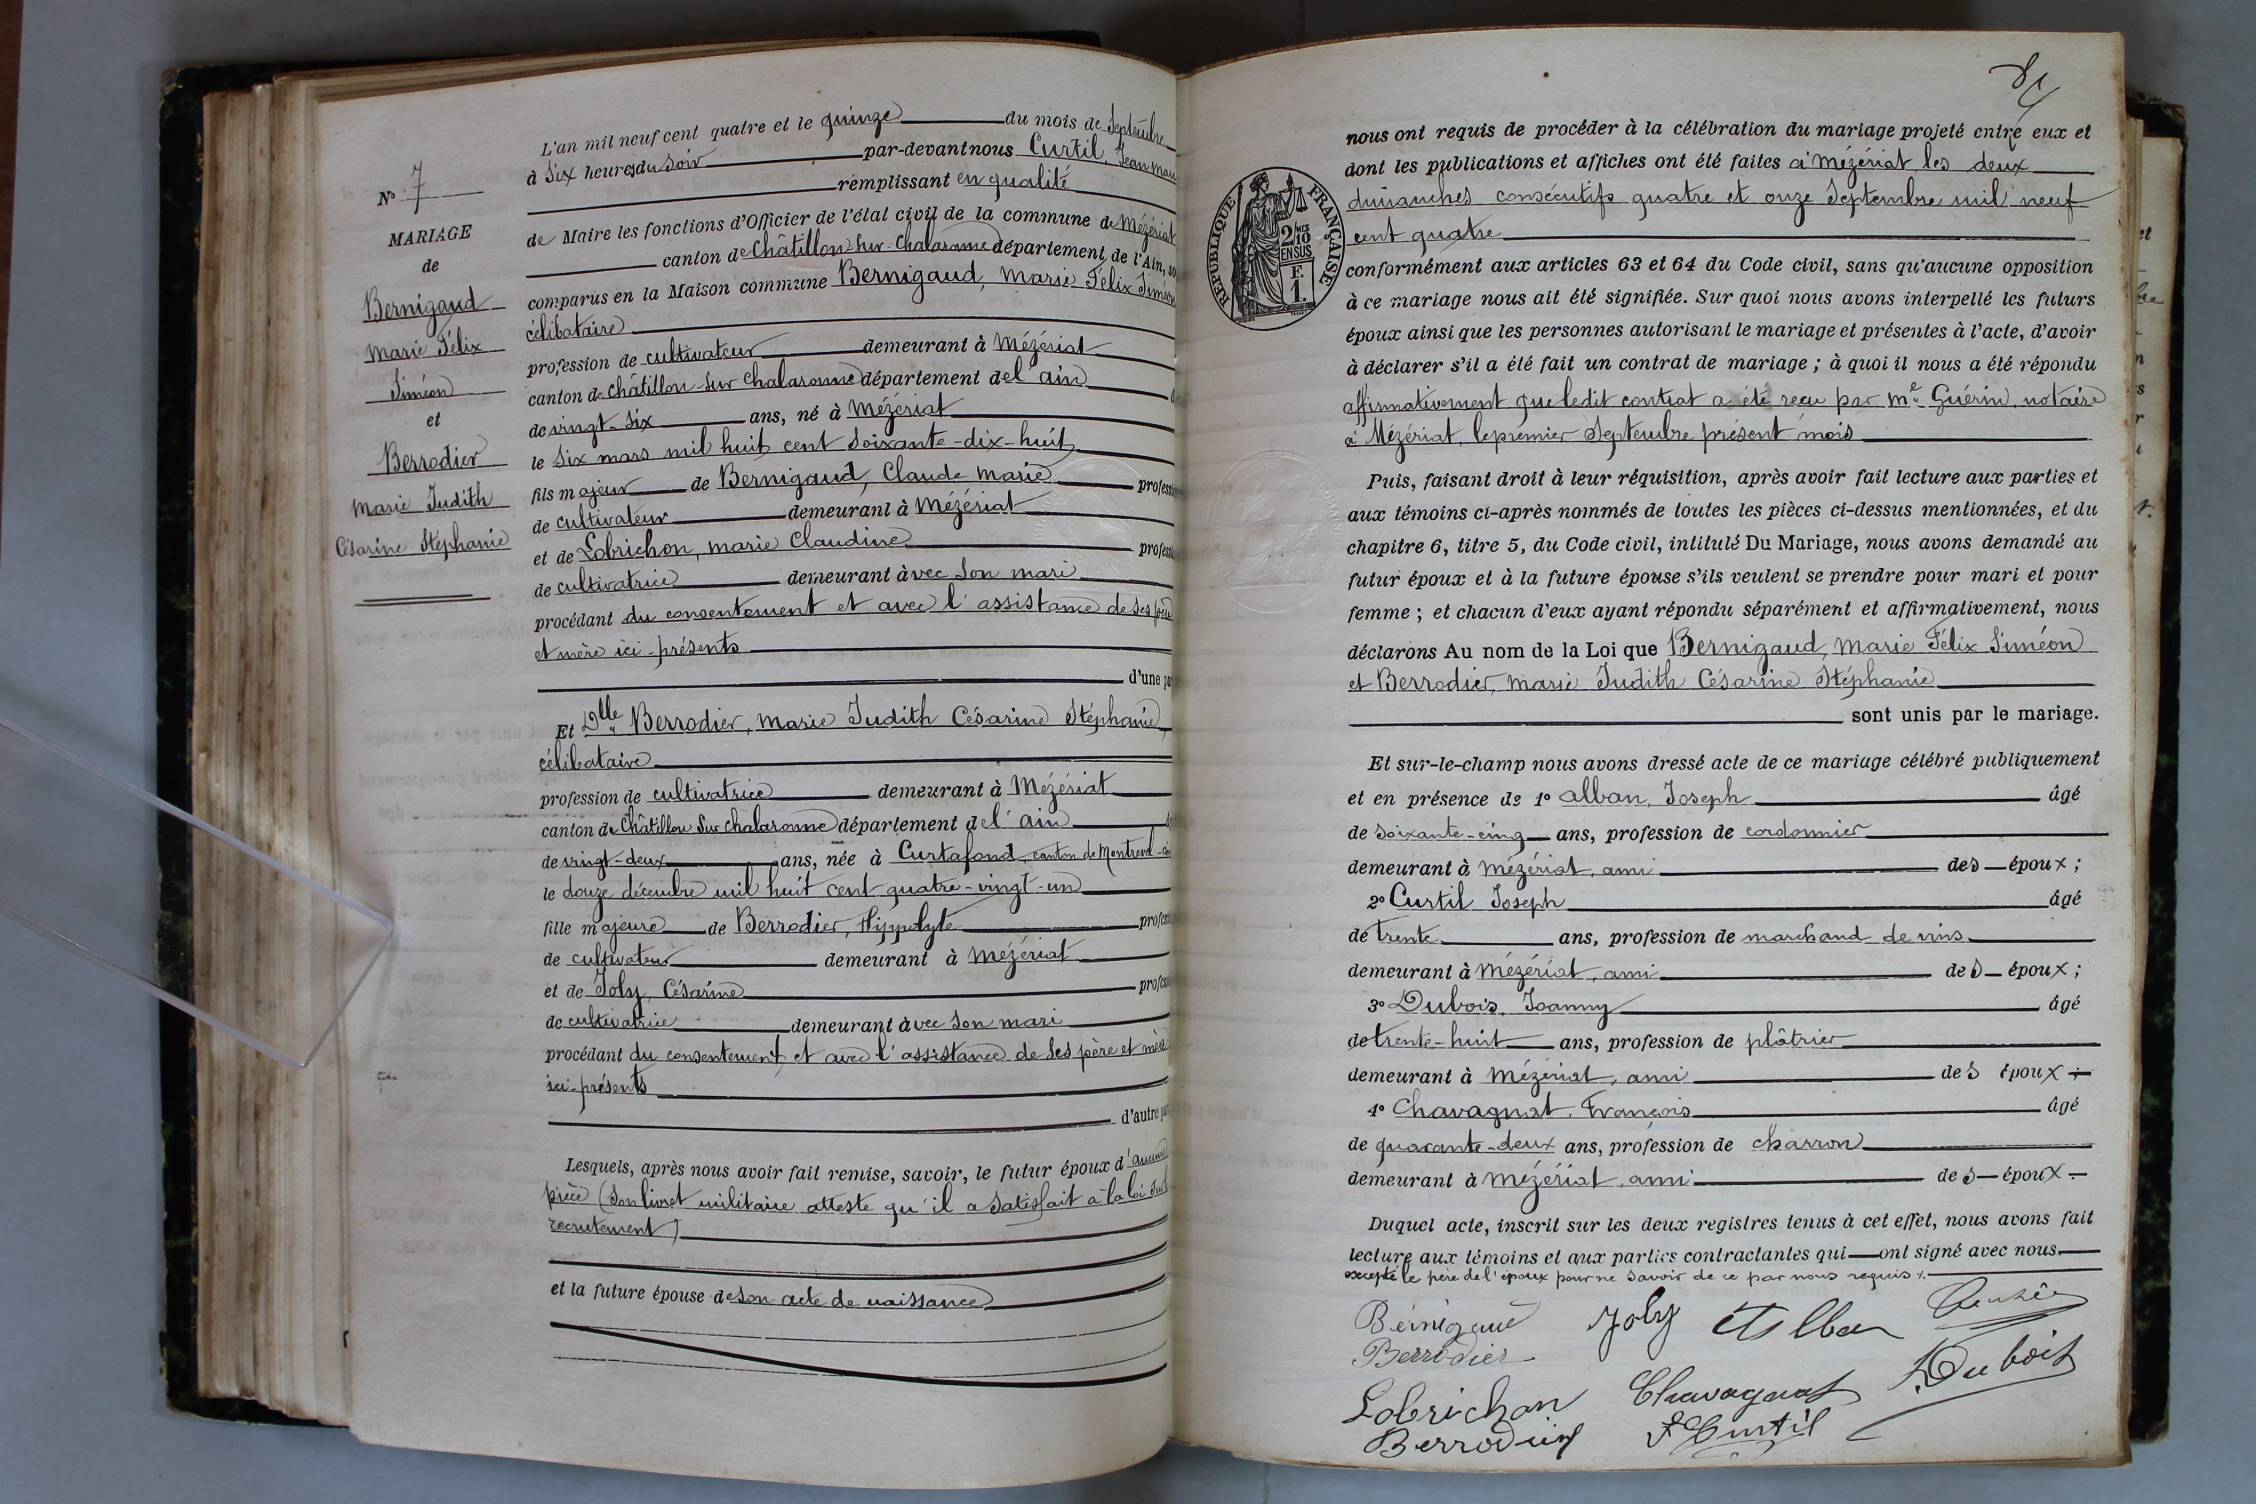 N° 7
MARIAGE
de
Bernigaud
Marie Félix
Siméon
et
Berrodier
Marie Judith
Césarine Stéphanie
L'an mil neuf cent quatre et le quinze du mois de Septembre
à Six heures du Soir par-devant nous Curtil, Jean Marie
remplissant en qualité
de Maire les fonctions d'Officier de l'état civil de la commune de Mézériat
canton de Châtillon-sur-Chalaronne département de l'Ain, so
comparus en la Maison commune Bernigaud, Marie Félix Siméon
célibataire
profession de cultivateur demeurant à Mézériat
canton de Châtillon-sur Chalaronne département de l'ain
de vingt-six ans, né à Mézériat
le six mars mil huit cent soixante-dix-huit
fils majeur de Bernigaud, Claude Marie profess
de cultivateur demeurant à Mézériat
et de Lobrichon, marie Claudine profess
de cultivatrice demeurant avec son mari
procédant du consentement et avec l'assistance de ses père
et mère ici-présents
d'une par
Et Dlle Berrodier, Marie Judith Césarine Stéphanie,
célibataire
profession de cultivatrice demeurant à Mézériat
canton de Châtillon sur Chalaronne département de l'ain
de vingt-deux ans, née à Curtafond, canton de Montrevel-ain
le douze décembre mil huit cent quatre-vingt-un
fille majeure de Berrodier, Hippolyte profess
de cultivateur demeurant à Mézériat
et de Joly, Césarine profess
de cultivatrice demeurant avec son mari
procédant du consentement et avec l'assistance de ses père et mère
ici-présents
d'autre par
Lesquels, après nous avoir fait remise, savoir, le futur époux d'aucune
pièce (son livret militaire atteste qu'il a satisfait à la loi sur le
recrutement)
et la future épouse de son acte de naissance
84
RÉPUBLIQUE FRANÇAISE
2/10 MES
EN SUS
F.
1.
nous ont requis de procéder à la célébration du mariage projeté entre eux et
dont les publications et affiches ont été faites à Mézériat les deux
dimanches consécutifs quatre et onze Septembre mil neuf
cent quatre
conformément aux articles 63 et 64 du Code civil, sans qu'aucune opposition
à ce mariage nous ait été signifiée. Sur quoi nous avons interpellé les futurs
époux ainsi que les personnes autorisant le mariage et présentes à l'acte, d'avoir
à déclarer s'il a été fait un contrat de mariage ; à quoi il nous a été répondu
affirmativement que ledit contrat a été reçu par Me Guérin, notaire
à Mézériat, le premier Septembre présent mois
Puis, faisant droit à leur réquisition, après avoir fait lecture aux parties et
aux témoins ci-après nommés de toutes les pièces ci-dessus mentionnées, et du
chapitre 6, titre 5, du Code civil, intitulé Du Mariage, nous avons demandé au
futur époux et à la future épouse s'ils veulent se prendre pour mari et pour
femme ; et chacun d'eux ayant répondu séparément et affirmativement, nous
déclarons Au nom de la Loi que Bernigaud, Marie Félix Siméon
et Berrodier, Marie Judith Césarine Stéphanie
sont unis par le mariage.
Et sur-le-champ nous avons dressé acte de ce mariage célébré publiquement
et en présence de 1° Alban, Joseph âgé
de soixante-cinq ans, profession de cordonnier
demeurant à Mézériat, ami des époux ;
2° Curtil Joseph âgé
de trente ans, profession de marchand de vins
demeurant à Mézériat, ami des époux ;
3° Dubois, Joanny âgé
de trente-huit ans, profession de plâtrier
demeurant à Mézériat, ami des époux ;
4° Chavagnat, François âgé
de quarante-deux ans, profession de charron
demeurant à Mézériat, ami des époux
Duquel acte, inscrit sur les deux registres tenus à cet effet, nous avons fait
lecture aux témoins et aux parties contractantes qui ont signé avec nous
excepté le père de l'époux pour ne savoir de ce par nous requis
Bernigaud Joly Alban
Berrodier
Dubois
Lobrichon Chavagnat
Berrodier J Curtil